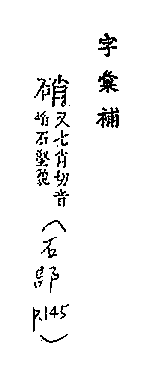 字彙補
硝又七肖切音
峭石堅貌
(石部
P.145)